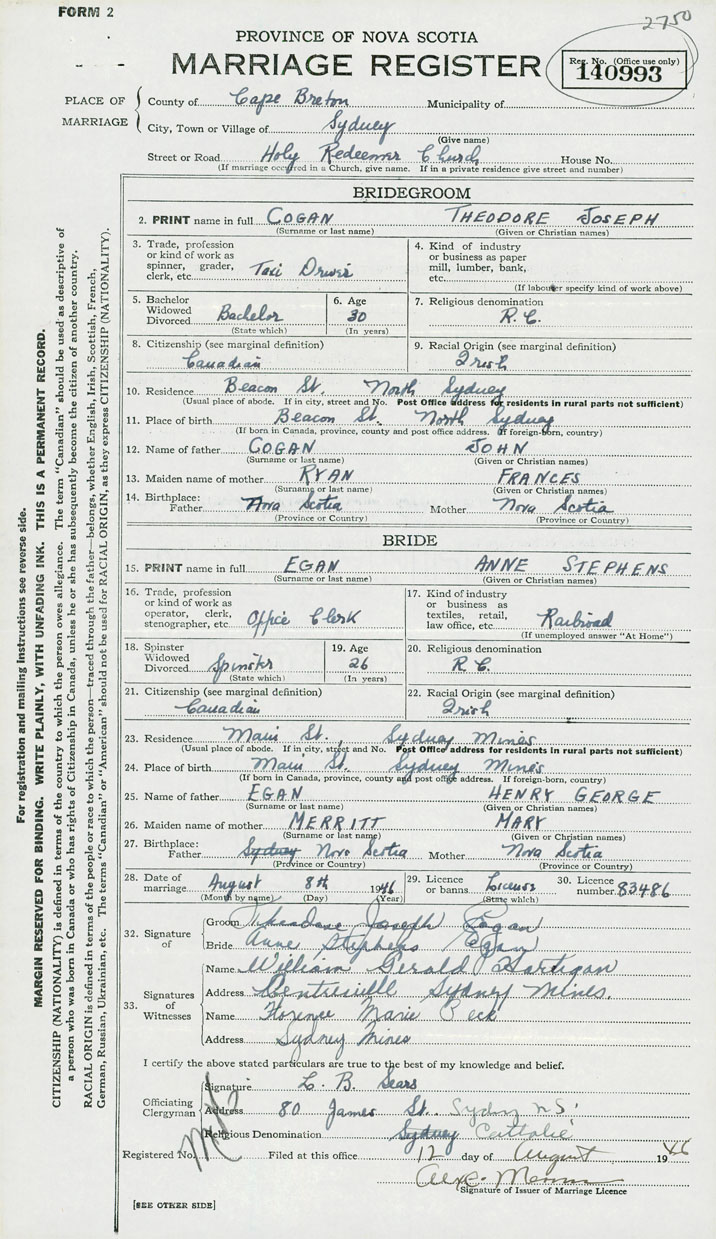 FORM 2
2750
PROVINCE OF NOVA SCOTIA
MARRIAGE REGISTER
Reg. No. (Office use only)
140993
PLACE OF MARRIAGE
County of Cape Breton Municipality of
City, Town or Village of Sydney
(Give name)
Street or Road Holy Redeemer Church House No.
(If marriage occurred in a Church, give name. If in a private residence give street and number)
BRIDEGROOM
2. PRINT name in full COGAN THEODORE JOSEPH
(Surname or last name) (Given or Christian names)
3. Trade, profession or kind of work as spinner, grader, clerk, etc. Taxi Driver
4. Kind of industry or business as paper mill, lumber, bank, etc.
(If labourer specify kind of work above)
5. Bachelor Widowed Divorced Bachelor
(State which)
6. Age 30
(In years)
7. Religious denomination
R.C.
8. Citizenship (see marginal definition)
Canadian
9. Racial Origin (see marginal definition)
Irish
10. Residence Beacon St. North Sydney
(Usual place of abode. If in city, street and No. Post Office address for residents in rural parts not sufficient)
11. Place of birth Beacon St. North Sydney
(If born in Canada, province, county and post office address. If foreign-born, country)
12. Name of father COGAN JOHN
(Surname or last name) (Given or Christian names)
13. Maiden name of mother RYAN FRANCES
(Surname or last name) (Given or Christian names)
14. Birthplace:
Father Nova Scotia Mother Nova Scotia
(Province or Country) (Province or Country)
BRIDE
15. PRINT name in full EGAN ANNE STEPHENS
(Surname or last name) (Given or Christian names)
16. Trade, profession or kind of work as operator, clerk, stenographer, etc. Office Clerk
17. Kind of industry or business as textiles, retail, law office, etc. Railroad
(If unemployed answer "At Home")
18. Spinster Widowed Divorced Spinster
(State which)
19. Age 26
(In years)
20. Religious denomination
R.C.
21. Citizenship (see marginal definition)
Canadian
22. Racial Origin (see marginal definition)
Irish
23. Residence Main St. Sydney Mines
(Usual place of abode. If in city, street and No. Post Office address for residents in rural parts not sufficient)
24. Place of birth Main St. Sydney Mines
(If born in Canada, province, county and post office address. If foreign-born, country)
25. Name of father EGAN HENRY GEORGE
(Surname or last name) (Given or Christian names)
26. Maiden name of mother MERRITT MARY
(Surname or last name) (Given or Christian names)
27. Birthplace:
Father Sydney Nova Scotia Mother Nova Scotia
(Province or Country) (Province or Country)
28. Date of marriage August 8th 1946
(Month by name) (Day) (Year)
29. Licence or banns License
(State which)
30. Licence number 83486
32. Signature of
Groom Theodore Joseph Cogan
Bride Anne Stephens Egan
33. Signatures of Witnesses
Name William Gerald Hartigan
Address Centreville Sydney Mines.
Name Florence Marie Peck
Address Sydney Mines
I certify the above stated particulars are true to the best of my knowledge and belief.
Officiating Clergyman
Signature L. B. Sears
Address 80 James St. Sydney N.S.
Religious Denomination Sydney Catholic
Registered No. Filed at this office 12 day of August 1946
Signature of Issuer of Marriage Licence
[SEE OTHER SIDE]
For registration and mailing instructions see reverse side.
MARGIN RESERVED FOR BINDING. WRITE PLAINLY, WITH UNFADING INK. THIS IS A PERMANENT RECORD.
CITIZENSHIP (NATIONALITY) is defined in terms of the country to which the person owes allegiance. The term "Canadian" should be used as descriptive of
a person who was born in Canada or who has rights of Citizenship in Canada, unless he or she has subsequently become the citizen of another country.
RACIAL ORIGIN is defined in terms of the people or race to which the person—traced through the father—belongs, whether English, Irish, Scottish, French,
German, Russian, Ukrainian, etc. The terms "Canadian" or "American" should not be used for RACIAL ORIGIN, as they express CITIZENSHIP (NATIONALITY).